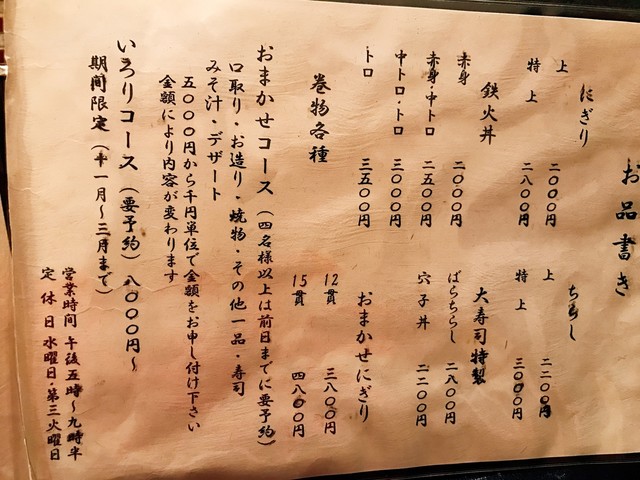 お品書き
にぎり
上 二〇〇〇円
特上 二八〇〇円
鉄火丼
赤身 二〇〇〇円
赤身・中トロ 二五〇〇円
中トロ・トロ 三〇〇〇円
トロ 三五〇〇円
巻物各種
ちらし
上 二二〇〇円
特上 三〇〇〇円
大寿司特製
ばらちらし 二八〇〇円
穴子丼 二二〇〇円
おまかせにぎり
12貫 三八〇〇円
15貫 四八〇〇円
おまかせコース（四名様以上は前日までに要予約）
口取り・お造り・焼物・その他一品・寿司
みそ汁・デザート
五〇〇〇円から千円単位で金額をお申し付け下さい
金額により内容が変わります
いろりコース（要予約）八〇〇〇円～
期間限定（十一月～三月まで）
営業時間 午後五時～九時半
定休日 水曜日・第三火曜日